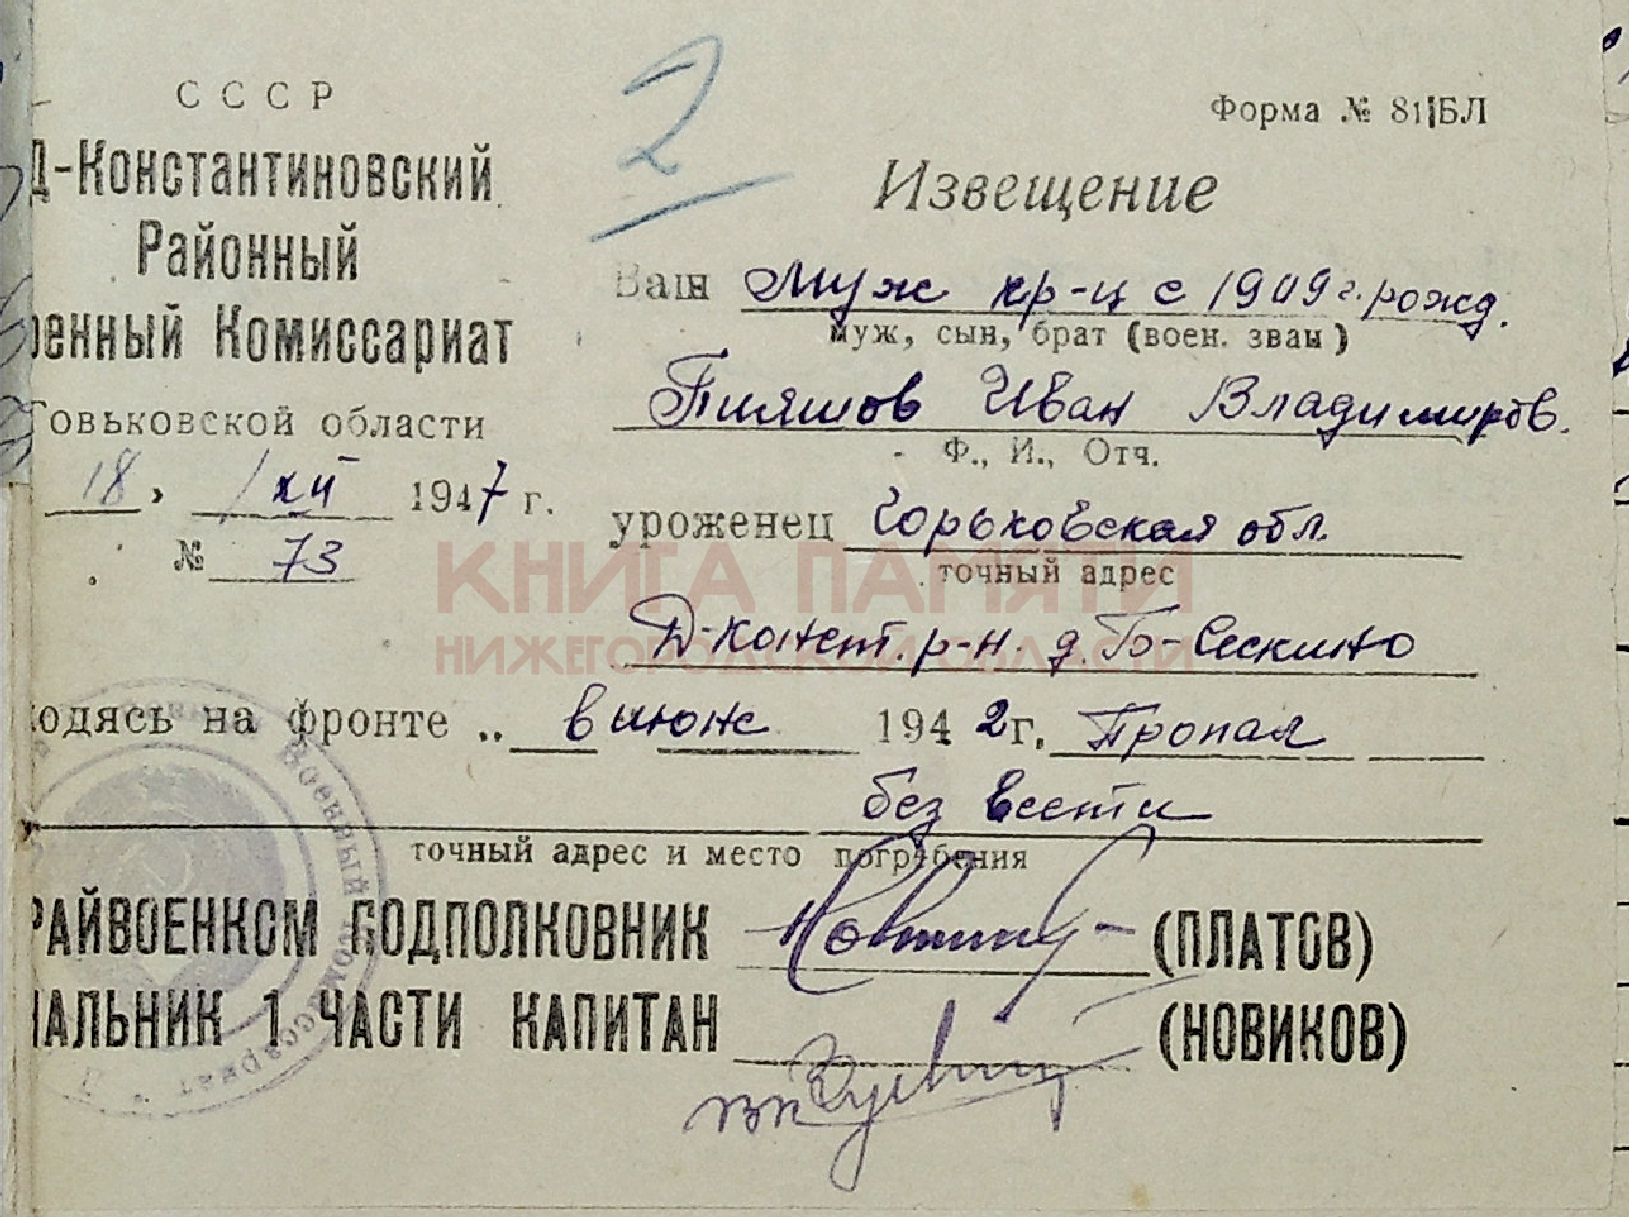 2
СССР
Форма № 81|БЛ
Д-Константиновский
Извещение
Районный
Ваш муж кр-ц с 1909 г. рожд.
енный Комиссариат
муж, сын, брат (воен. зван)
Пияшов Иван Владимиров.
Говьковской области
Ф., И., Отч.
18, XII 1947 г.
уроженец Горьковская обл.
№ 73
точный адрес
КНИГА ПАМЯТИ
НИЖЕГОРОДСКОЙ ОБЛАСТИ
Д-Конст. р-н. д. Б-Сескино
ходясь на фронте „ в июне 1942г. Пропал
без вести
точный адрес и место погребения
РАЙВОЕНКОМ ПОДПОЛКОВНИК (ПЛАТОВ)
ЧАЛЬНИК 1 ЧАСТИ КАПИТАН (НОВИКОВ)
военный комиссариат